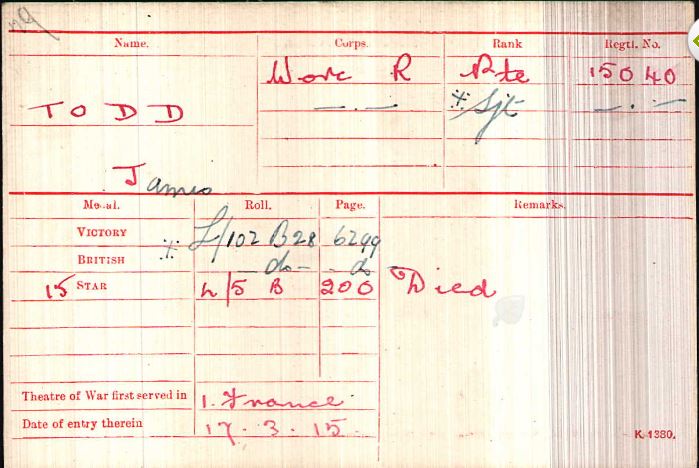 Name. Corps. Rank Regtl. No.
Worc R Pte 15040
TODD —.— ※ Sjt —.—
James
Medal. Roll. Page. Remarks.
VICTORY ※ L/102 B28 6299
BRITISH —do— do
15 STAR L/5 B 200 Died
Theatre of War first served in 1. France
Date of entry therein 17.3.15.
K. 1380.